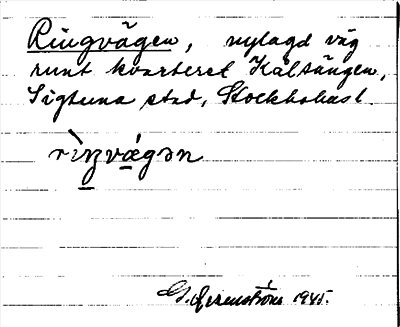 Ringvägen, nylagd väg
runt kvarteret Kålsängen,
Sigtuna stad, Stockholmsl.
rìŋvǽgən
1945.